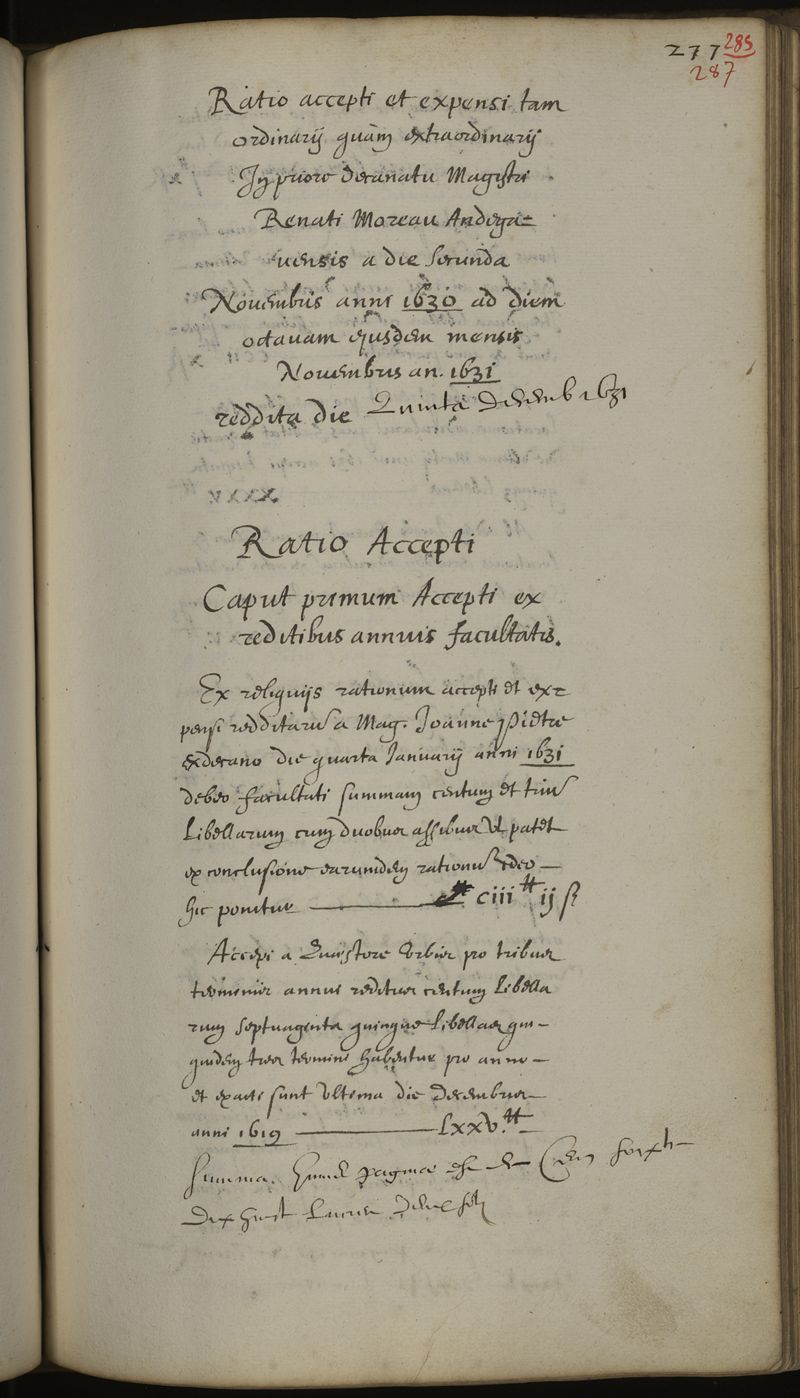 277 285
287
Ratio accepti et expensi tam
ordinarij quàm extraordinarij
In priore decanatu Magistri
Renati Moreau Andega=
uensis a die secunda
Nouembris anni 1630 ad diem
octauam ejusdem mensis
Nouembris an. 1631
reddita die Quinta Decemb 1631
Ratio Accepti
Caput primum Accepti ex
reditibus annuis facultatis.
Ex reliquijs rationum accepti et ex=
pensi redditaru a Mag. Joanne Pietre
exdecano die quarta Januarij anni 1631
debeo facultati summam centum et triu
Libellarum cum duobus assibus vt patet
ex conclusione earumdem rationu ideo
hic ponitur ciii tt ij s
Accepi a Quaestore Vrbis pro tribus
terminis annui reditus centum Libella
rum septuaginta quinque Libellas qui
quidem tres termini habentur pro anno
et exacti sunt Vltima die Decembris
anni 1619 Lxxv tt
Summa huius paginae est de Cens soix
dix huict Liures deux solz